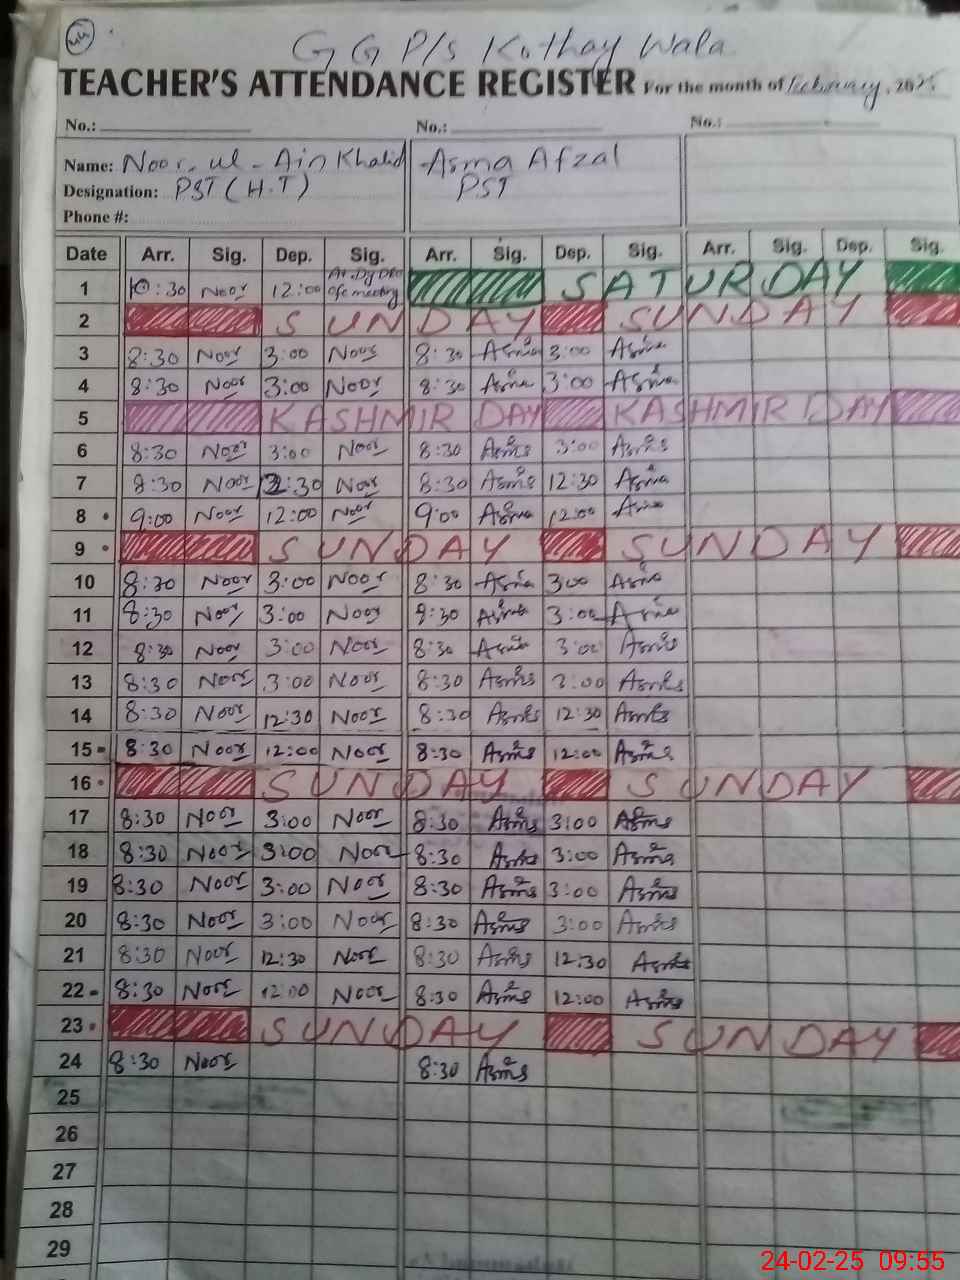 44
G G P/s Kothay Wala
TEACHER'S ATTENDANCE REGISTER For the month of February, 2025
No.: No.: No.:
Name: Noor-ul-Ain Khalid Asma Afzal
Designation: PST (H.T) PST
Phone #:
Date Arr. Sig. Dep. Sig. Arr. Sig. Dep. Sig. Arr. Sig. Dep. Sig.
1 10:30 Noor 12:00 At Dy DEO Ofc meeting SATURDAY
2 SUNDAY SUNDAY
3 8:30 Noor 3:00 Noor 8:30 Asma 3:00 Asma
4 8:30 Noor 3:00 Noor 8:30 Asma 3:00 Asma
5 KASHMIR DAY KASHMIR DAY
6 8:30 Noor 3:00 Noor 8:30 Asma 3:00 Asma
7 8:30 Noor 12:30 Noor 8:30 Asma 12:30 Asma
8 9:00 Noor 12:00 Noor 9:00 Asma 12:00 Asma
9 SUNDAY SUNDAY
10 8:30 Noor 3:00 Noor 8:30 Asma 3:00 Asma
11 8:30 Noor 3:00 Noor 8:30 Asma 3:00 Asma
12 8:30 Noor 3:00 Noor 8:30 Asma 3:00 Asma
13 8:30 Noor 3:00 Noor 8:30 Asma 3:00 Asma
14 8:30 Noor 12:30 Noor 8:30 Asma 12:30 Asma
15 8:30 Noor 12:00 Noor 8:30 Asma 12:00 Asma
16 SUNDAY SUNDAY
17 8:30 Noor 3:00 Noor 8:30 Asma 3:00 Asma
18 8:30 Noor 3:00 Noor 8:30 Asma 3:00 Asma
19 8:30 Noor 3:00 Noor 8:30 Asma 3:00 Asma
20 8:30 Noor 3:00 Noor 8:30 Asma 3:00 Asma
21 8:30 Noor 12:30 Noor 8:30 Asma 12:30 Asma
22 8:30 Noor 12:00 Noor 8:30 Asma 12:00 Asma
23 SUNDAY SUNDAY
24 8:30 Noor 8:30 Asma
25
26
27
28
29
24-02-25 09:55